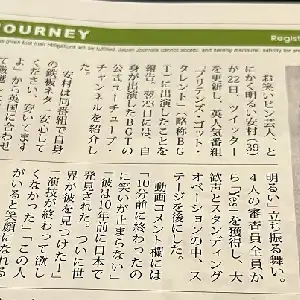 JOURNEY
Regist
お笑いピン芸人、と
にかく明るい安村（39）
が22日、ツイッター
を更新し、英人気番組
「ブリテンズ・ゴット・
タレント」（略称BG
T）に出演したことを
報告。翌23日には、自
身が出演したBGTの
公式ユーチューブ・
チャンネルを紹介し
た。
安村は同番組で自身
の鉄板ネタ「安心して
ください、穿いてます
よ」から英国に合わせ
明るい」立ち振る舞い。
4人の審査員全員か
ら「Yes」を獲得し、大
歓声とスタンディング
オベーションの中、ス
テージを後にした。
動画コメント欄には
「10分前に終わったの
に笑いが止まらない」
「彼は10年前に日本で
発見された。ついに世
界が彼を見つけた！」
「演技が終わって欲し
くなかった」「この人
がいると笑顔になれる